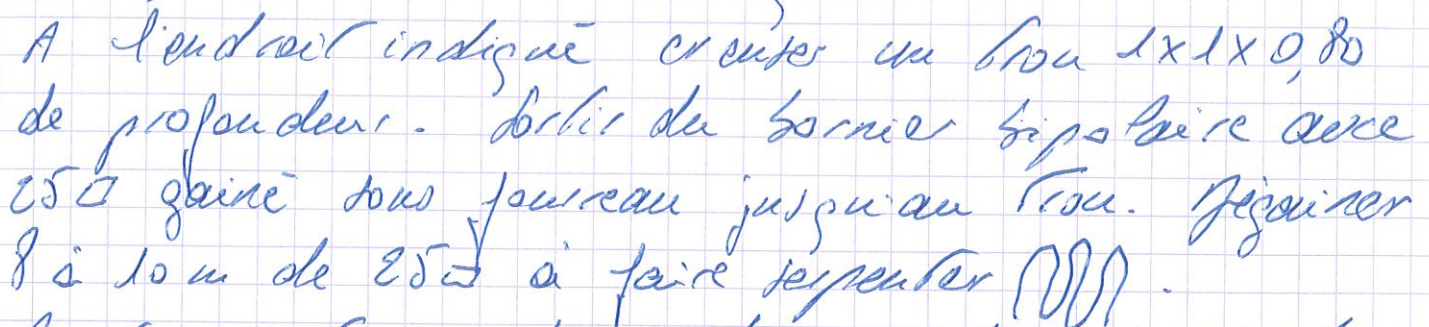 A l'endroit indiqué creuser un trou 1x1x0,80
de profondeur. Sortir du bornier bipolaire avec
25□ gainé sous fourreau jusqu'au trou. Dégainer
8 à 10 m de 25□ à faire serpenter